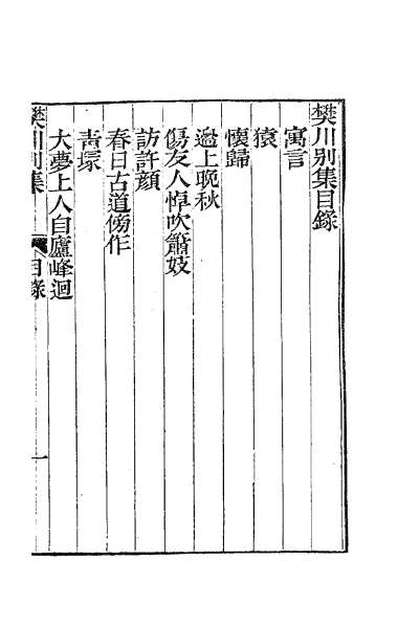 樊川別集目錄
寓言
猿
懷歸
邊上晚秋
傷友人悼吹簫妓
訪許顔
春日古道傍作
青塚
大夢上人自廬峰迴
樊川別集 目錄 一